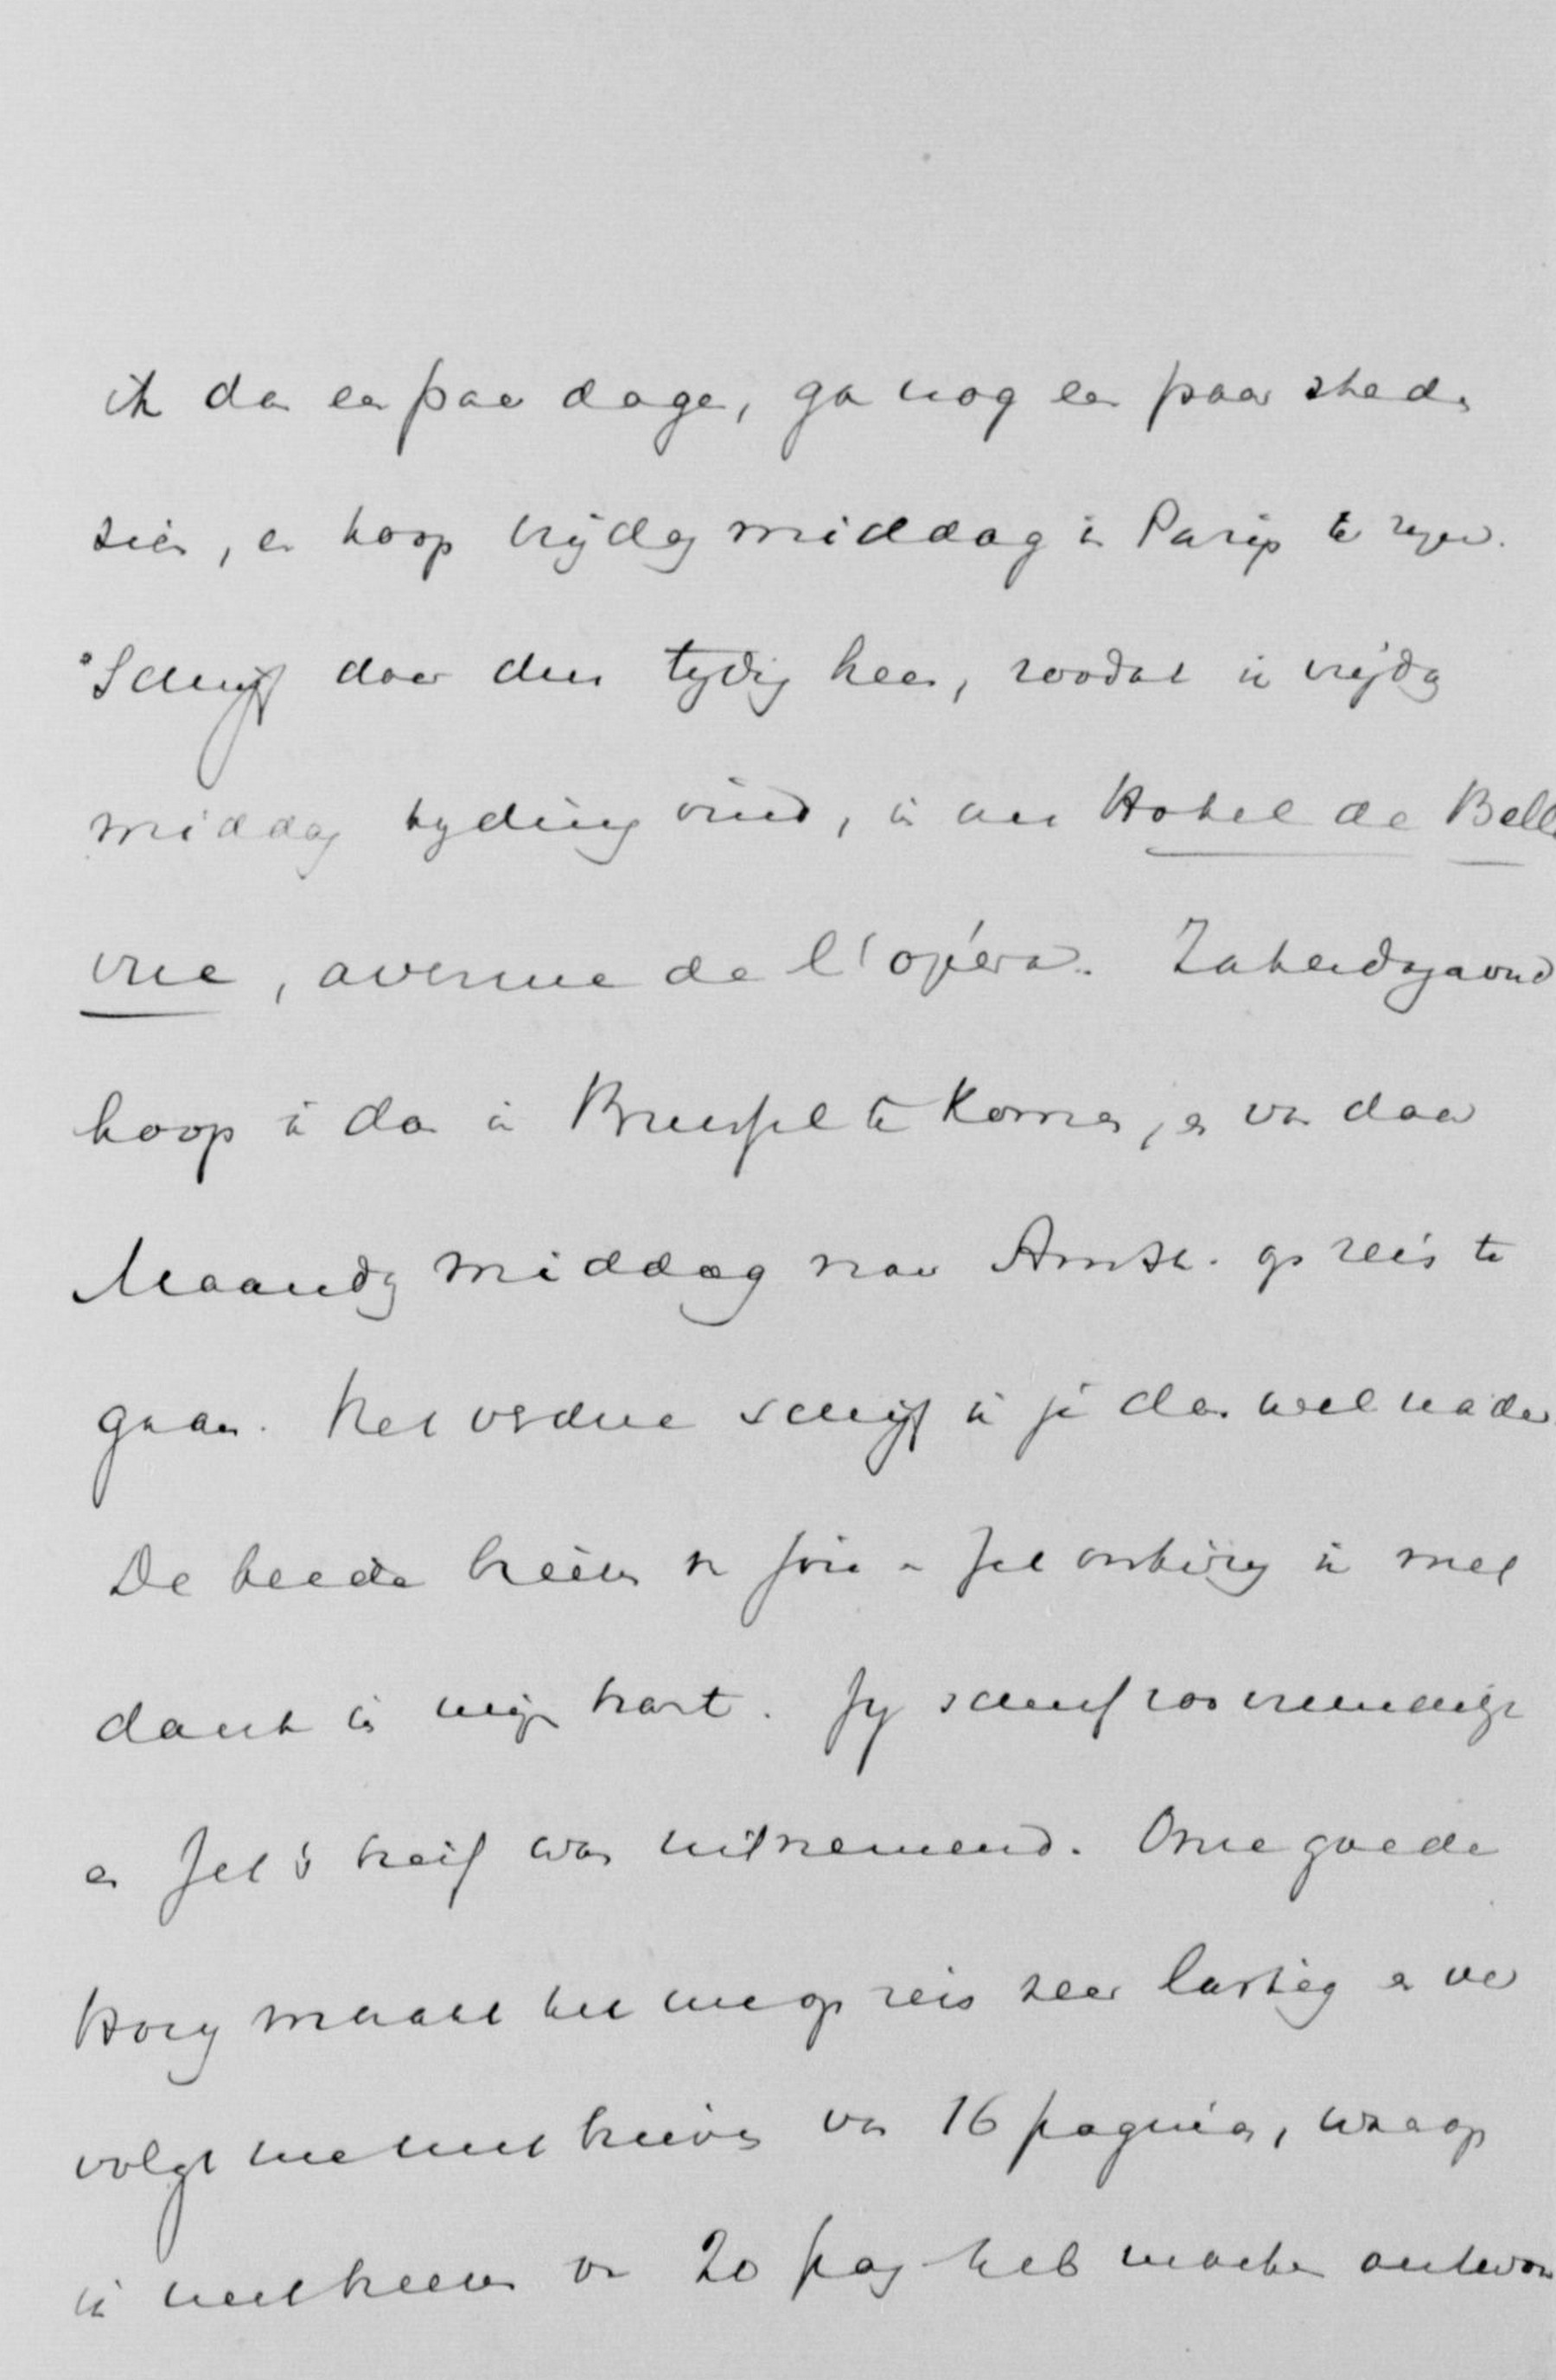 ik dan een paar dagen, ga nog een paar steden
zien, en hoop vrijdag middag in Parijs te zijn.
Schrijf daar dus tijdig heen, zoodat ik vrijdag
middag tyding vind, in het Hotel de Belle
vue, avenue de l'opéra. Zaterdagavond
hoop ik dan in Brussel te komen, en van daar
Maandag middag naar Amst. op reis te
gaan. Het verdere schrijf ik je dan wel nader
De beide brieven van jou en Jet ontving ik met
dank in mijn hart. Jy schreef zoo vriendelijk
en Jet's brief was uitnemend. Onze goede
maakt het me op reis zeer lastig en ver
volgt me met brieven van 16 pagina's, waarop
ik met brieven van 20 pag heb moeten antwoor